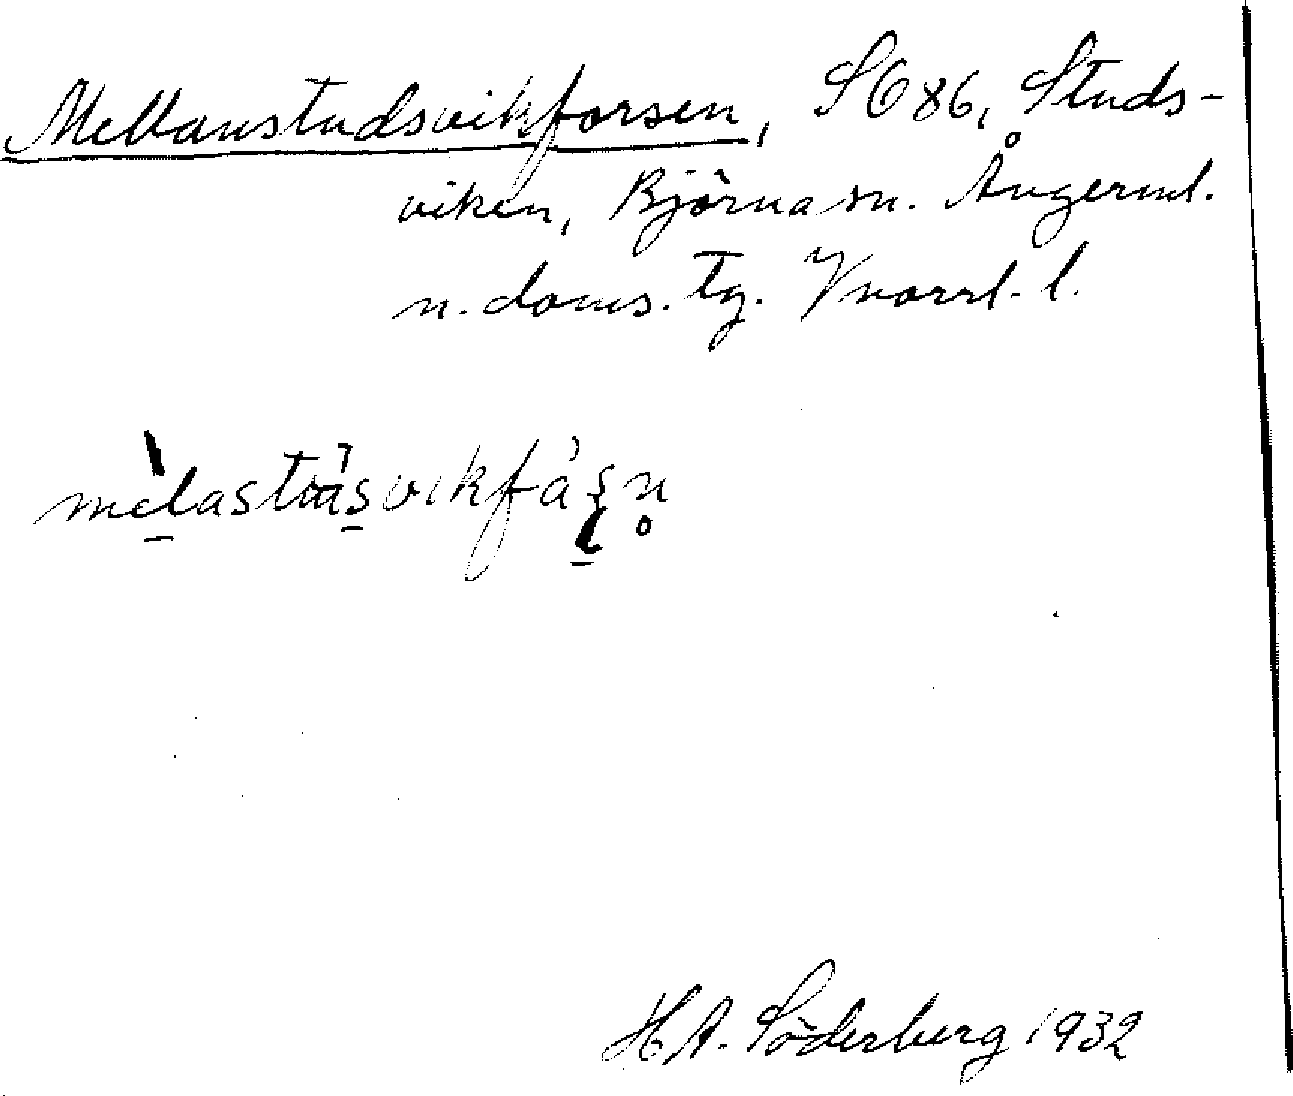 Mellanstudsvikforsen, SO 86, Studs-
viken, Björna sn. Ångerml.
n. doms. tg. Vnorrl. l.
H. A. Söderberg 1932